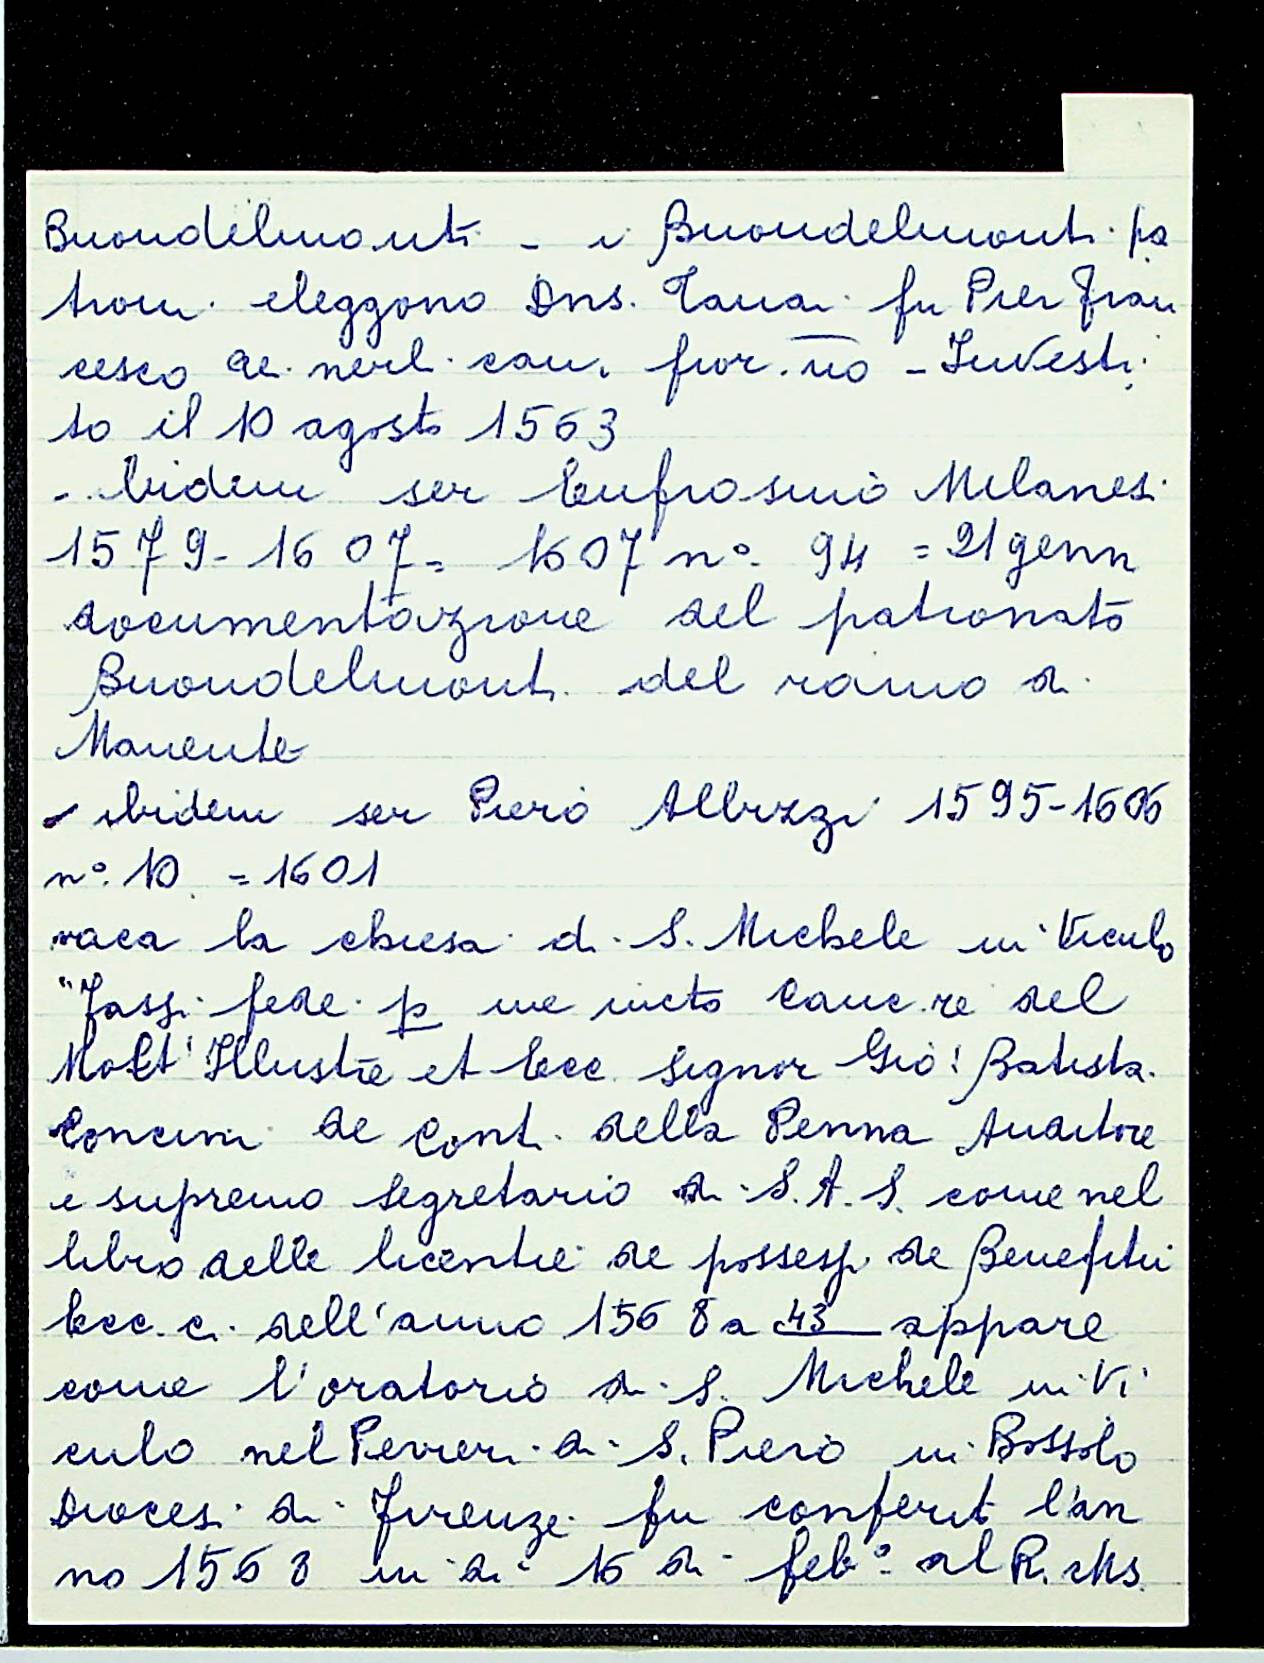 Buondelmonti - i Buondelmonti pa
troni eleggono Dns. Tanai fu Pier Fran
cesco de nerli can. fior.no - Investi
to il 10 agosto 1563
- Ibidem ser Eufrosino Milanesi
1579-1607 = 1607 n°. 94 = 21 genn
documentazione del patronato
Buondelmonti del ramo di
Manente
- ibidem ser Piero Albizzi 1595-1606
n°. 10 = 1601
vaca la chiesa di S. Michele in Viculo
"Fassi fede p me Canc.re del
Molt' Illustre et Ecc. signor Gio: Batista
Concini de Conti della Penna Auditore
e supremo Segretario di S.A.S. come nel
libro delle licentie de possessi de Benefitii
Ecc.ci dell'anno 1568 a 43 appare
come l'oratorio di S. Michele in Vi
culo nel Pivieri di S. Piero in Bossolo
Diocesi di Firenze fu conferito l'an
no 1568 in di 16 di feb° al R. Ms.